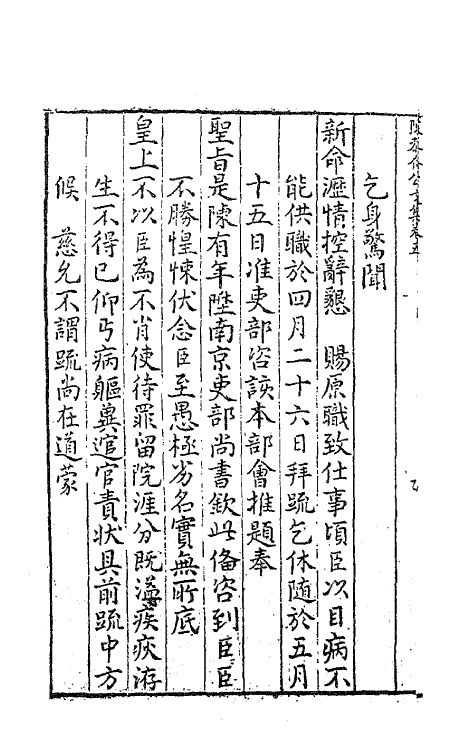 陳恭介公文集卷五
乞身驚聞
新命瀝情控辭懇　賜原職致仕事頃臣以目病不
能供職於四月二十六日拜疏乞休隨於五月
十五日准吏部咨該本部會推題奉
聖旨是陳有年陞南京吏部尚書欽此俻咨到臣臣
不勝惶悚伏念臣至愚極劣名實無所底
皇上不以臣為不肖使待罪留院涯分既溢疾疢洊
生不得已仰丐病軀兾逭官責狀具前疏中方
候　慈允不謂疏尚在道蒙